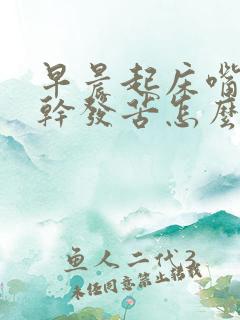 早晨起床嘴
幹發苦怎麼
鱼人二代3
未经同意禁止转载